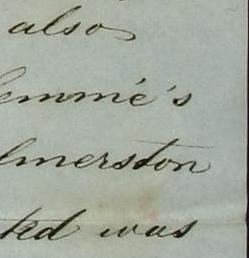 also
emmé's
lmerston
ted was